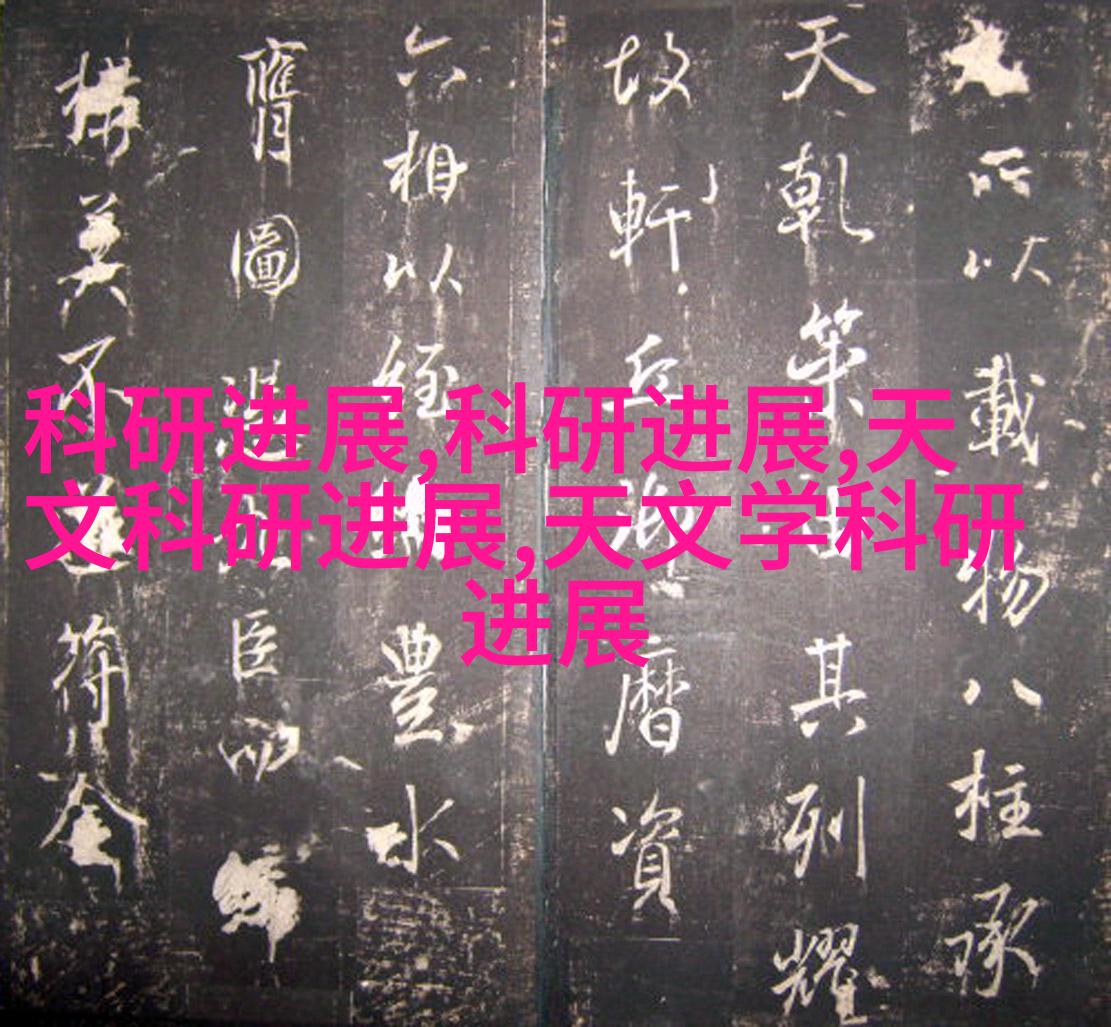 科研进展,科研进展,天
文科研进展,天文学科研
进展
所以載物八柱承
天乾策其列耀
故軒丘曆資
六相以經豐水
膺圖臣
構不符